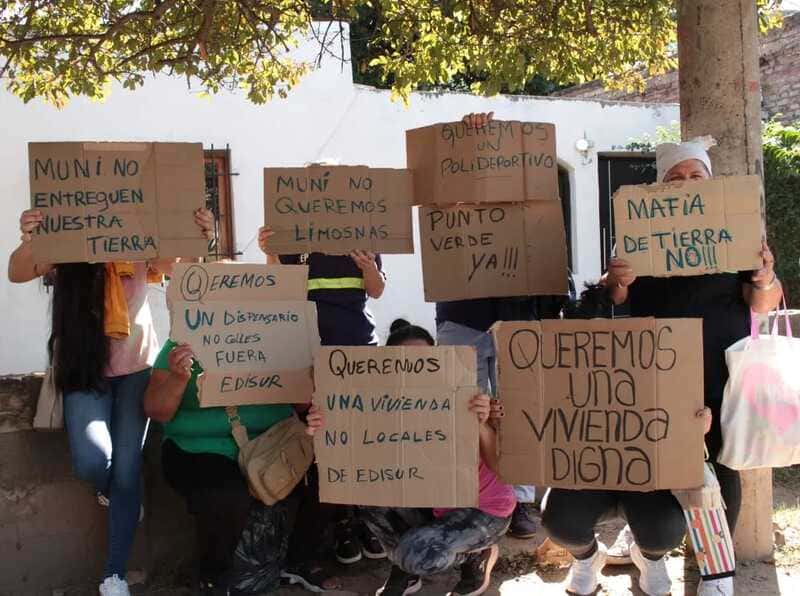 MUNI NO
ENTREGUEN
NUESTRA
TIERRA
MUNI NO
QUEREMOS
LIMOSNAS
QUEREMOS
UN
POLIDEPORTIVO
PUNTO
VERDE
YA!!!
MAFIA
DE TIERRA
NO!!!
QUEREMOS
UN DISPENSARIO
NO CALLES
FUERA
EDISUR
QUEREMOS
UNA VIVIENDA
NO LOCALES
DE EDISUR
QUEREMOS
UNA
VIVIENDA
DIGNA